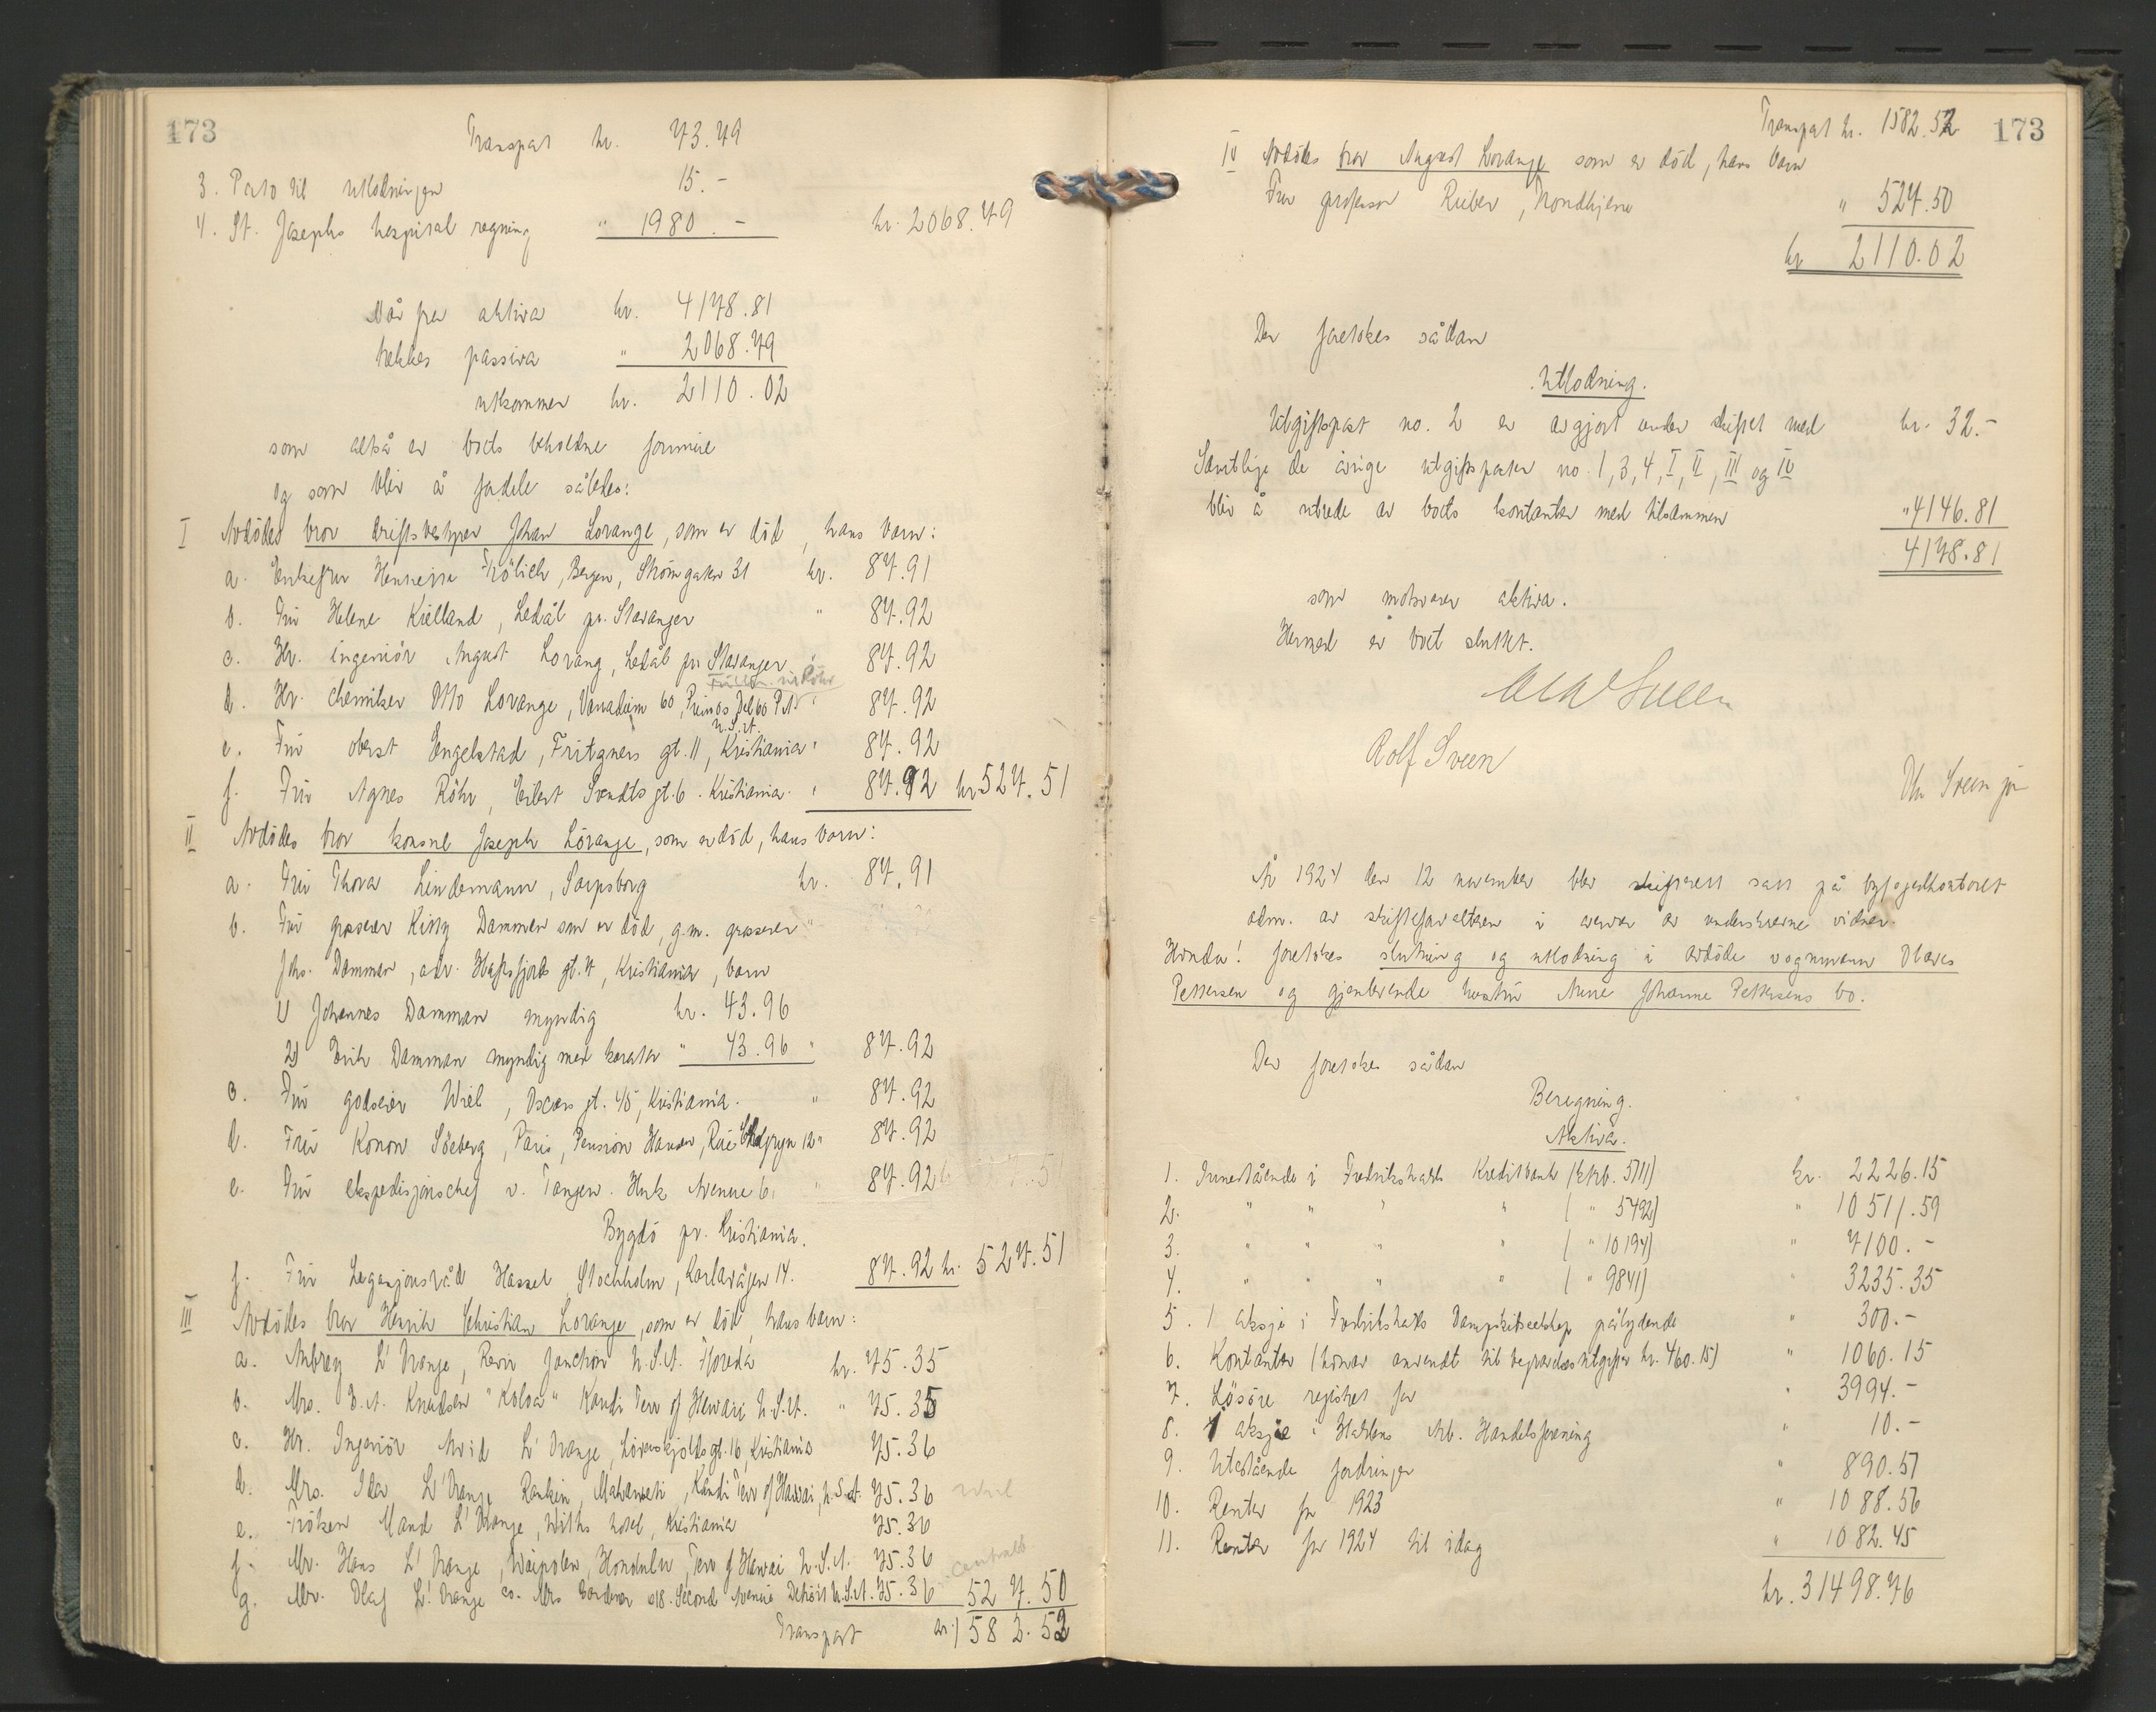 173
Transport kr. 73.79
3. Porto til utlodningen 15.-
4. St. Josephs hospital regning " 1980.- kr. 2068.79
Når fra aktiva kr. 4178.81
trekkes passiva " 2068.79
utkommer kr. 2110.02
som altså er boets beholdne formue
og som blir å fordele således:
I Avdödes bror driftsbestyrer Johan Lorange, som er död, hans barn:
a. Enkefru Henriette Frölich, Bergen, Strömgaten 31 kr. 87.91
b. Fru Helene Kielland, Ledål pr. Stavanger " 87.92
c. Hr. ingeniör August Lorang, Ledål pr. Stavanger " 87.92
d. Hr. chemiker Otto Lorange, Vanadium 60, Primos Del 60 Pa " 87.92
U.S.A.
e. Fru oberst Engelstad, Fritzners gt. 11, Kristiania " 87.92
f. Fru Agnes Röhr, Eilert Sundts gt. 6. Kristiania. " 87.92 kr 527.51
II Avdödes bror konsul Joseph Lorange, som er död, hans barn:
a. Fru Thora Lindemann, Sarpsborg kr. 87.91
b. Fru grosserer Kitty Dammen som er död, g.m. grosserer "
Johs. Damman, adr. Hafrsfjords gt. 7, Kristiania, barn
1) Johannes Damman myndig kr. 43.96
2) Erik Damman myndig med kurator " 43.96 " 87.92
c. Fru godseier Wiel, Oscars gt. 45, Kristiania. " 87.92
d. Fru Konow Söeberg, Paris, Pension Haväer, Rue 12 " 87.92
e. Fru ekspedisjonschef v. Tangen. Huk Avenue 6, " 87.92
Bygdö pr. Kristiania.
f. Fru Legasjonsråd Hassel Stockholm, Karlavägen 14. 87.92 kr. 527.51
III Avdödes bror Henrik Christian Lorange, som er död, hans barn:
a. Aubrey L'Orange, Jonction U.S.A. Floreda kr. 75.35
b. Mrs. E.A. Knudsen "Koloa" Kauai Terr of Hawaii U.S.A. " 75.35
c. Hr. Ingeniör Arvid L'Orange, Lövenskjolds gt. 16, Kristiania 75.36
d. Mrs. Ida L'Orange Rankin, Makaweli, Kauai Terr of Hawai, U.S.A. 75.36
e. Fröken Maud L'Orange, Withs hotel, Kristiania 75.36
f. Mr. Hans L'Orange, Waipolen, Honolulu, Terr of Hawai U.S.A. 75.36
g. Mr. Olaf L'Orange co. Mrs Gardener 618. Second Avenue Detroit U.S.A. 75.36 527.50
Transport kr. 1582.52
Transport kr. 1582.52 173
IV Avdödes bror August Lorange som er död, hans barn
Fru professor Rieber, Trondhjem " 527.50
kr 2110.02
Der foretokes sådan
Utlodning.
Utgiftspost no. 2 er avgjort under skiftet med kr. 32.-
Samtlige de övrige utgiftsposter no. 1, 3, 4, I, II, III og IV
blir å utrede av boets kontanter med tilsammen " 4146.81
4178.81
som motsvarer aktiva.
Hermed er boet sluttet.
Rolf Sveen
Chr Sveen jr
År 1924 den 12 november blev skifterett satt på byfogedkontoret
adm. av skifteforvalteren i nærvær av underskrevne vidner.
Hvorda! foretokes slutning og utlodning i avdöde vognmann Olaves
Pettersen og gjenlevende hustru Anne Johanne Pettersens bo.
Der foretokes sådan
Beregning.
Aktiva.
1. Innestående i Fredrikshalds Kreditbank (ktrb. 5711) kr. 2226.15
2. " " " " ( " 5492) " 10511.59
3. " " " " ( " 10194) " 7100.-
4. " " " " ( " 9841) " 3235.35
5. 1 aksje i Fredrikshalds Dampskibsselskap pålydende " 300.-
6. Kontanter (hvorav anvendt til begravelsesutgifter kr. 460.15) " 1060.15
7. Lösöre registrert for " 3994.-
8. 1 aksje i Haldens Arb. Handelsforening " 10.-
9. Utestående fordringer " 890.51
10. Renter for 1923 " 1088.56
11. Renter for 1924 til idag " 1082.45
kr. 31498.76